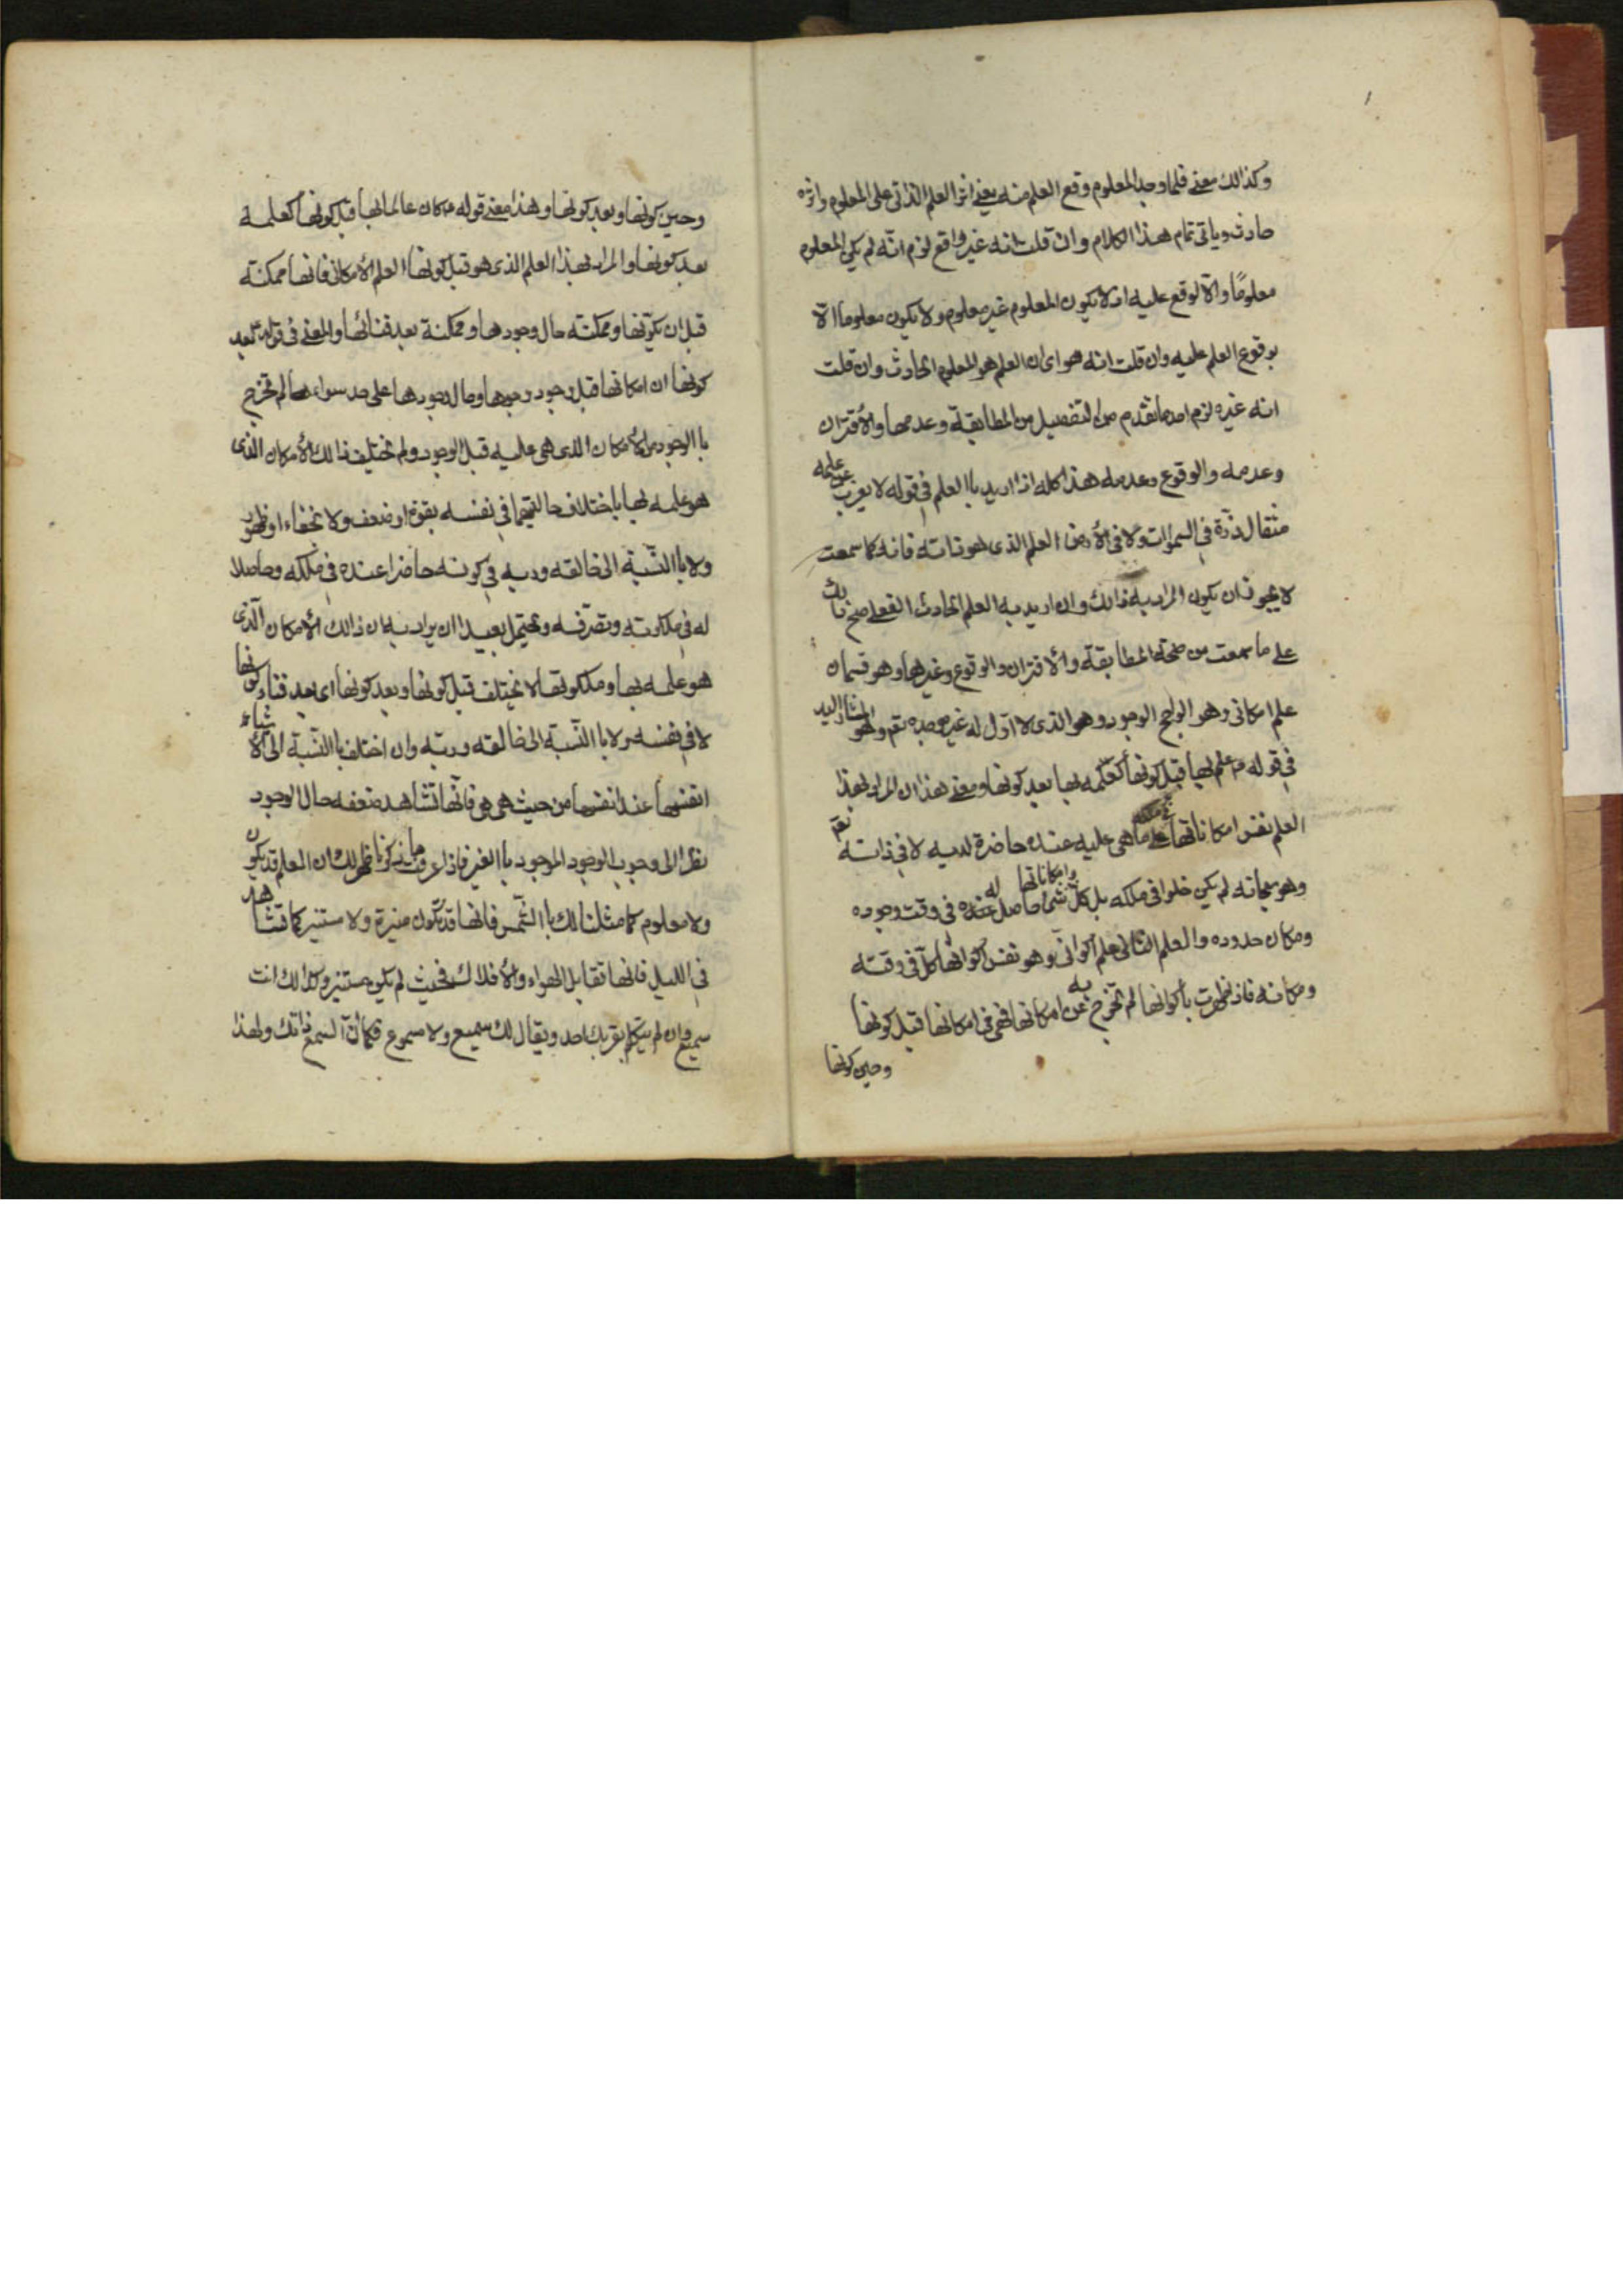 ١
وكذالك معنى فلما وجد المعلوم وقع العلم منه يعنى اثر العلم الذاتى على المعلوم واثره
حادث وياتى تمام هذا الكلام وان قلت انه غير واقع لزم انّه لم يكن المعلوم
معلومًا والّا لوقع عليه اذ لا يكون المعلوم غير معلوم ولا يكون معلوما الّا
بوقوع العلم عليه وان قلت انه هو اى ان العلم هو المعلوم الحادث وان قلت
انه غيره لزم احد ما تقدم من التفصيل من المطابقة وعدمها والأقتران
وعدمه والوقوع وعدمه هذا كله اذا اريد باالعلم فى قوله لا يعزب عن علمه
مثقال ذرّة فى السموات ولا فى الأرض العلم الذى هو ذاته فانه كما سمعت
لا يجوز ان يكون المراد به ذالك وان اريد به العلم الحادث الفعلى صح ذالك
على ما سمعت من صحة المطابقة والأقتران والوقوع وغيرها وهو قسمان
علم امكانى وهو الراجح الوجود وهو الذى لا اوّل له غير موجده تعم وهو المشار اليه
فى قوله ع علمه بها قبل كونها كعلمه بها بعد كونها ومعنى هذا ان المراد بهذا
العلم نفس امكاناتها على ما هى عليه عنده فى ملكه حاضرة لديه لا فى ذاته تعم
وهو سبحانه لم يكن خلوا فى ملكه بل كلّ شئ وامكاناتها حاصل له عنده فى وقت وجوده
ومكان حدوده والعلم الثانى علم أكوانىّ وهو نفس أكوانها كلّ فى وقته
ومكانه فاذا ظهرت بأكوانها لم تخرج به عن امكانها فهى فى امكانها قبل كونها
وحين كونها
وحين كونها وبعد كونها وهذا معنى قوله ع كان عالما بها قبل كونها كعلمه
بعد كونها والمراد بهذا العلم الذى هو قبل كونها العلم الأمكانى فانها ممكنة
قبل ان يكوّنها وممكنة حال وجودها وممكنة بعد فنائها والمعنى فى قوله بعد
كونها ان امكانها قبل وجود وجودها وحال وجودها على حد سواء لم تخرج
باالوجود من الأمكان الذى هى عليه قبل الوجود ولم يختلف ذالك الأمكان الذى
هو علمه بها باختلاف حالتيهما فى نفسه بقوة او ضعف ولا بخفاء او ظهور
ولا باالنّسبة الى خالقه وربه فى كونه حاضرا عنده فى ملكه وحاصلا
له فى ملكوته وتصرّفه ويحتمل بعيدا ان يراد به ان ذالك الأمكان الّذى
هو علمه بها وملكوتها لا يختلف قبل كونها وبعد كونها اى بعد فناء كونها
لا فى نفسه ولا باالنّسبة الى خالقه وربّه وان اختلف باالنّسبة الى الأشياء
انفسها عند انفسها من حيث هى هى فانّها تشاهد ضعفه حال الوجود
نظرا الى وجوب الوجود الموجود باالغير فاذا عرفت ما ذكرنا ظهر لك ان العلم قد يكون
ولا معلوم كما مثلنا لك باالشّمس فانها قد تكون منيرة ولا مستنير كما تشاهد
فى الليل فانها تقابل الهواء والأفلاك فحيث لم يكن مستنير وكذالك انت
سميع وان لم يتكلم بقربك احد ويقال لك سميع ولا مسموع فكما انّ السمع ذاتك ولهذا